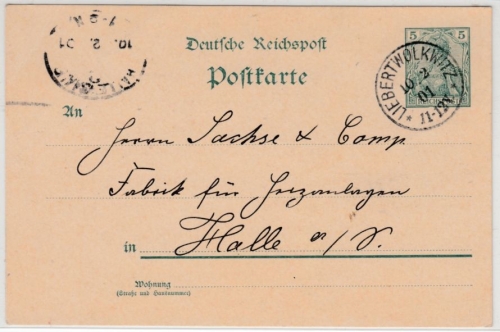 5 5
Deutsche Reichspost
Postkarte
10. 2. 01
LIEBERTWOLKWITZ
10 2
01
* 11-12V.
An
Herrn Sachse & Comp.
Fabrik für Heizanlagen
in Halle a/S.
Wohnung
(Straße und Hausnummer)